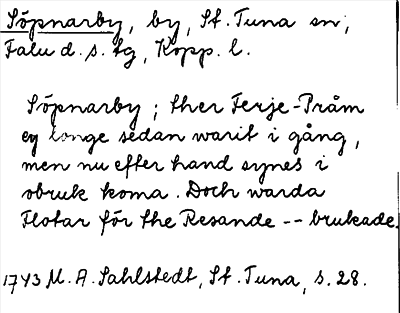 Söpnarby, by, St. Tuna sn;
Falu d. s. tg, Kopp. l.
Söpnarby; ther Ferje-Pråm
ey longe sedan warit i gång,
men nu effer hand synes i
obruk koma. Doch warda
Flotar för the Resande -- brukade.
1743 M. A. Sahlstedt, St. Tuna, s. 28.